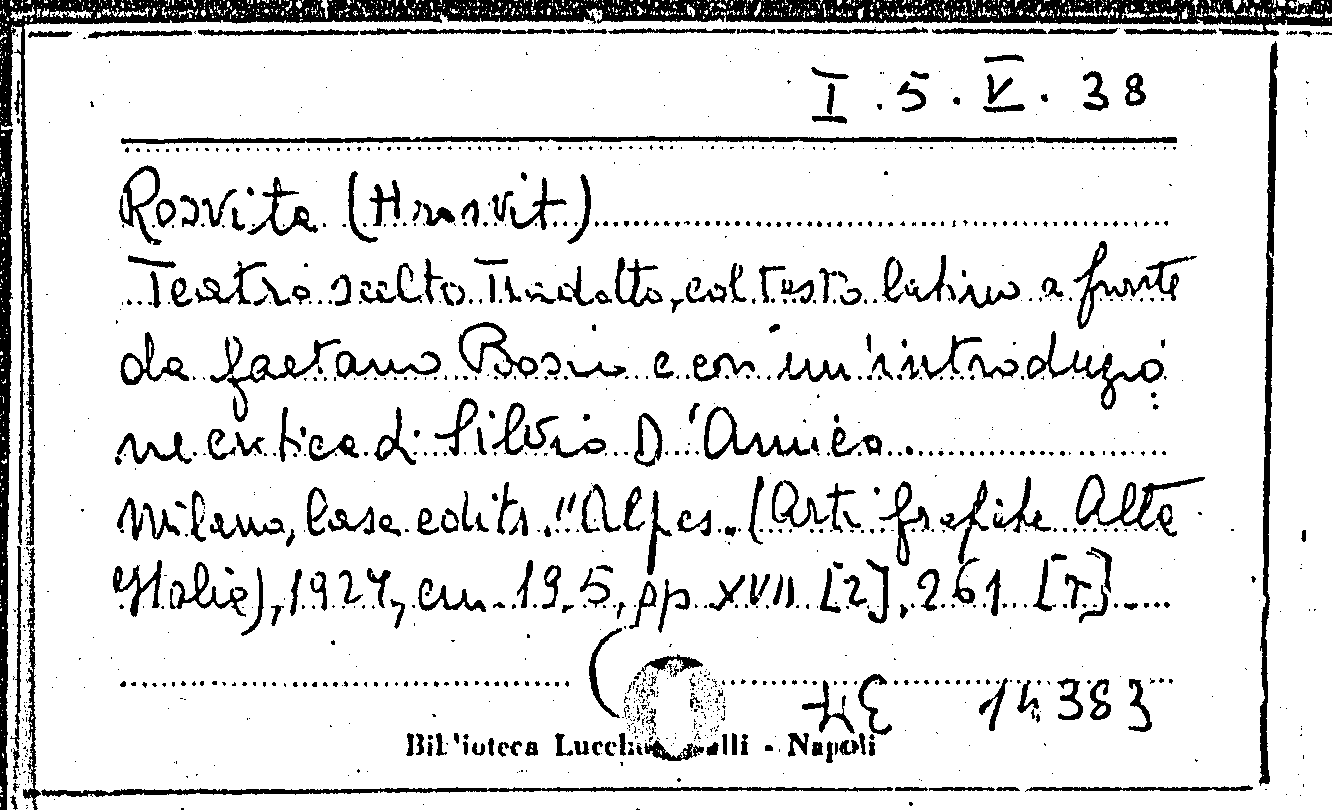 I. 5. V. 38
Rosvita (Hrosvit)
Teatro scelto Tradotto, col testo latino a fronte
da Gaetano Bosio e con un'introduzio
ne critica di Silvio D'Amico.
Milano, Casa editr. "Alpes. (Arti grafiche Alta
Italia), 1927, cm. 19,5, pp XVII [2], 261 [7]
14383
Biblioteca Lucchesi Palli - Napoli